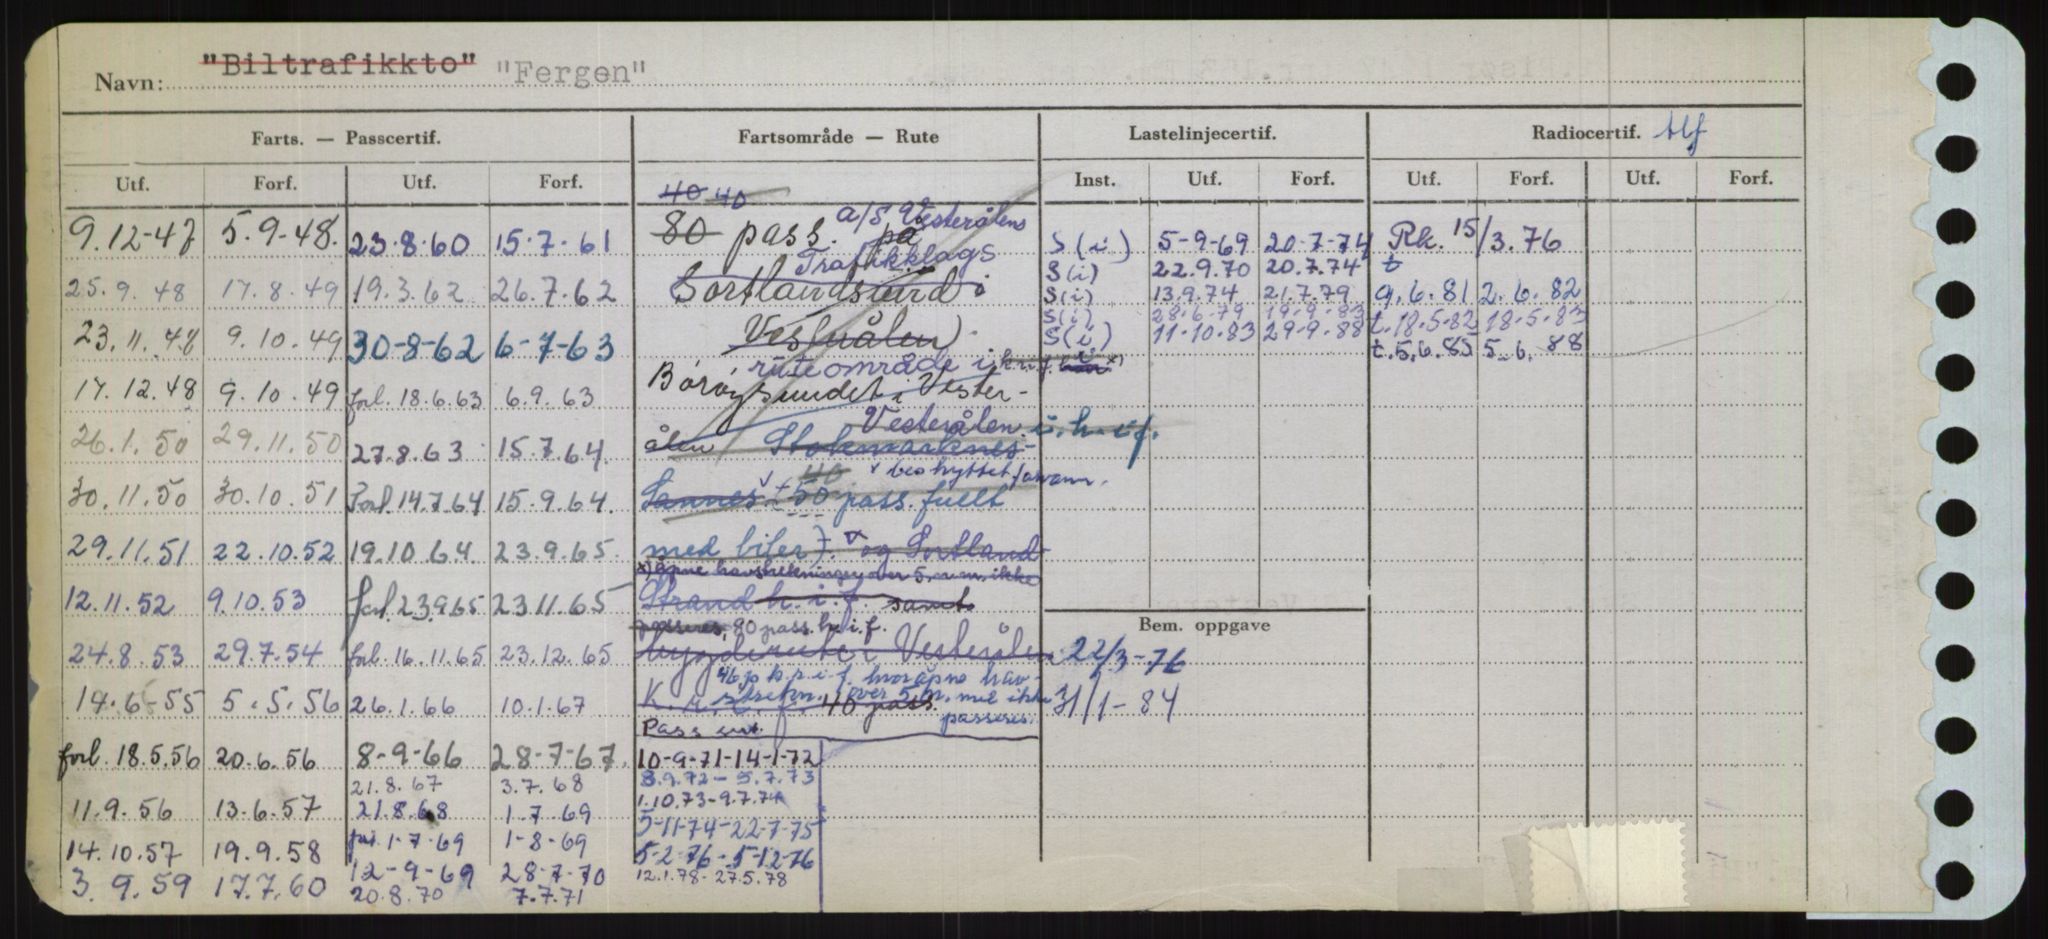 Navn: "Biltrafikkto" "Fergen"
Farts. — Passcertif. Fartsområde — Rute Lastelinjecertif. Radiocertif. tlf
Utf. Forf. Utf. Forf. Inst. Utf. Forf. Utf. Forf. Utf. Forf.
9.12-47 5.9-48. 23.8.60 15.7.61
25.9.48 17.8.49 19.3.62 26.7.62
23.11.48 9.10.49 30-8-62 6-7-63
17.12.48 9.10.49 forl. 18.6.63 6.9.63
26.1.50 29.11.50 27.8.63 15.7.64.
30.11.50 30.10.51 Forl. 14.7.64 15.9.64.
29.11.51 22.10.52 19.10.64. 23.9.65.
12.11.52 9.10.53 forl. 23.9.65 23.11.65
24.8.53 29.7.54 forl. 16.11.65 23.12.65
14.6-55 5.5.56 26.1.66 10.1.67
forl. 18.5.56 20.6.56 8-9-66 28-7-67.
21.8.67 3.7.68
11.9.56 13.6.57 21.8.68 1.7.69
1-7-69 1-8-69
14.10.57 19.9.58 12-9-69 28-7-70
3.9.59 17.7.60 20.8.70 7.7.71
40 40
80 pass. på a/S Vesterålens
Trafikklags
Sortlandsund i
Vesterålen.
ruteområde i
Børøysundet i Vester-
Vesterålen i.h.i.f.
ålen Stokmarknes-
40 v beskyttet farvann.
Sannes (50 pass. fullt
med biler). v og Sortland
x) åpne havstrekninger over 5 n.m. ikke
Strand h.i.f. samt
passeres, 80 pass. h.i.f.
bygderute i Vesterålen
46 p k.r.i.f. hvor åpne hav-
strekn. over 5 n. mil ikke
40 pass.
passeres.
Pass sert.
10-9-71-14-1-72
8.9.72 - 5.7.73
1.10.73-9.7.74
5-11-74-22-7-75
5-2-76-5-12-76
12.1.78-27.5.78
S(i) 5-9-69 20-7-74 Rk. 15/3.76
S(i) 22.9.70 20.7.74 t
S(i) 13.9.74 21.7.79 9.6.81 2.6.82
S(i) 28.6.79 19.9.83 t.18.5.82 18.5.83
S(i) 11-10.83 29-9.88 t.5.6.85 5.6.88
Bem. oppgave
22/3-76
31/1-84